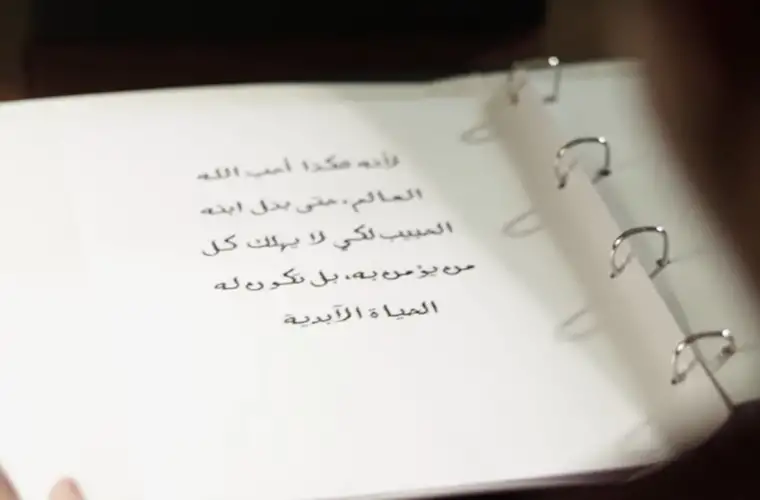 لأنه هكذا أحب الله
العالم، حتى بذل ابنه
الحبيب لكي لا يهلك كل
من يؤمن به، بل تكون له
الحياة الآبدية